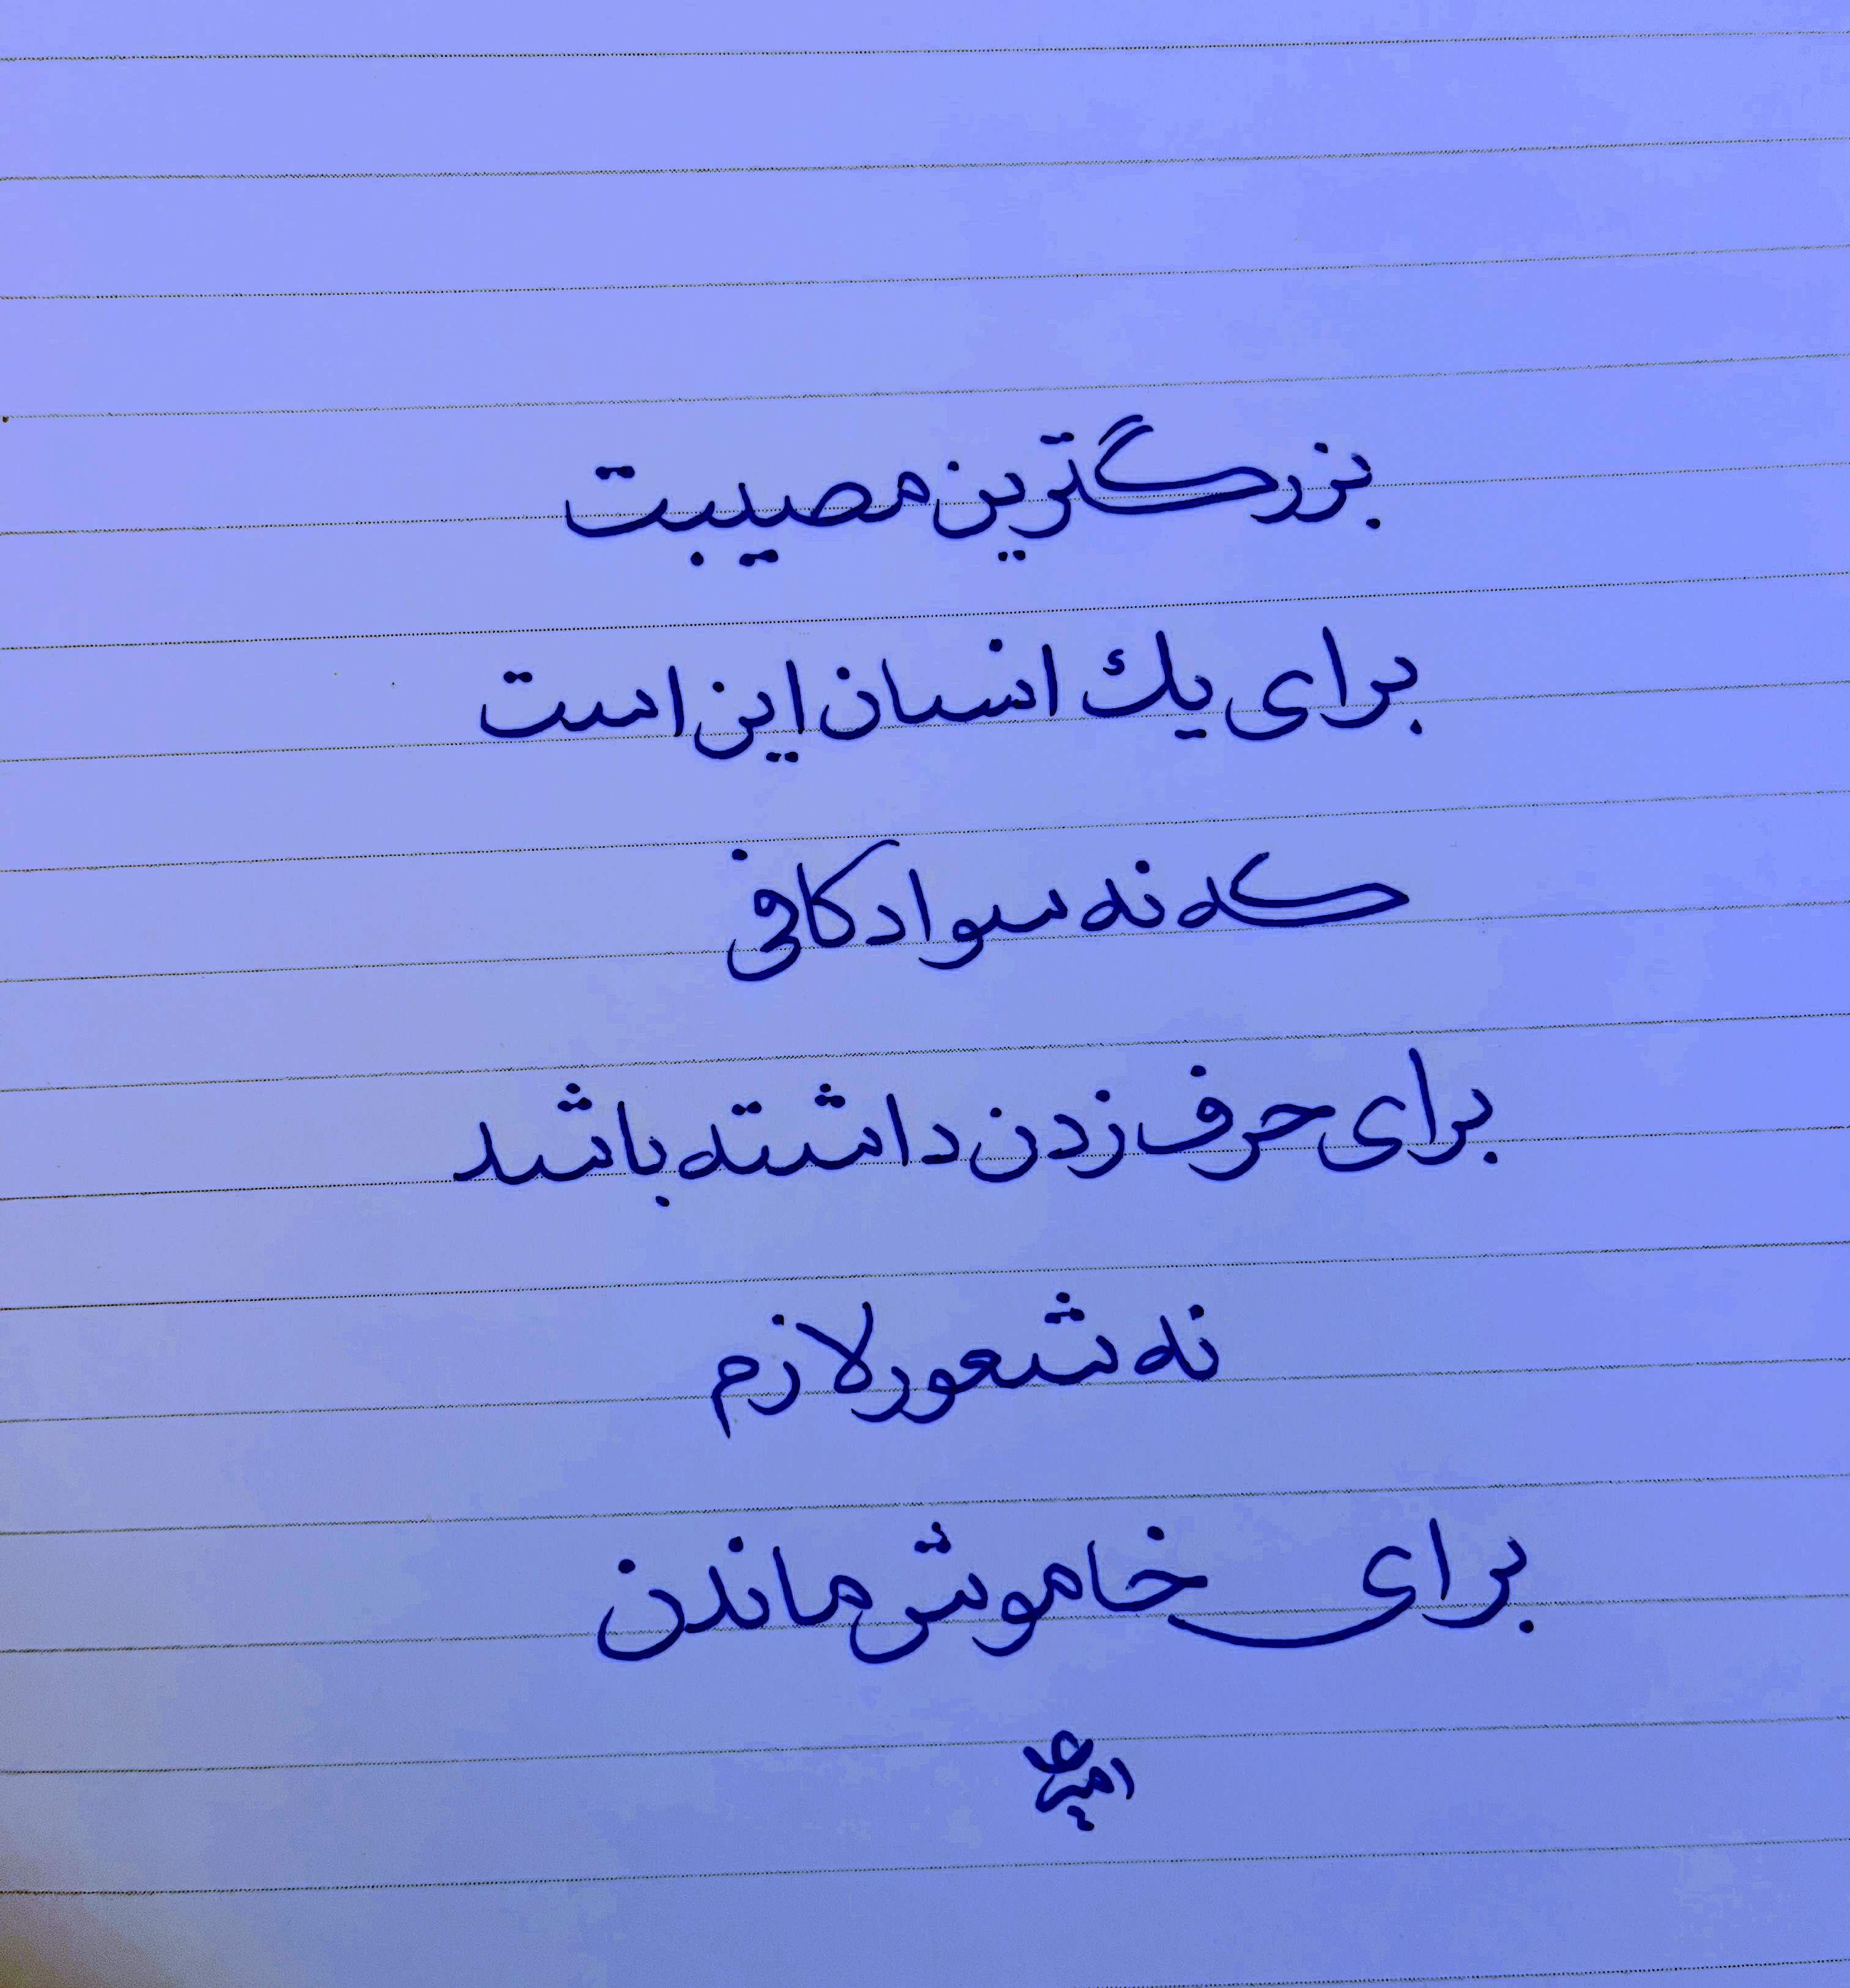 بزرگترین مصیبت
برای یك انسان این است
که نه سواد کافی
برای حرف زدن داشته باشد
نه شعور لازم
برای خاموش ماندن